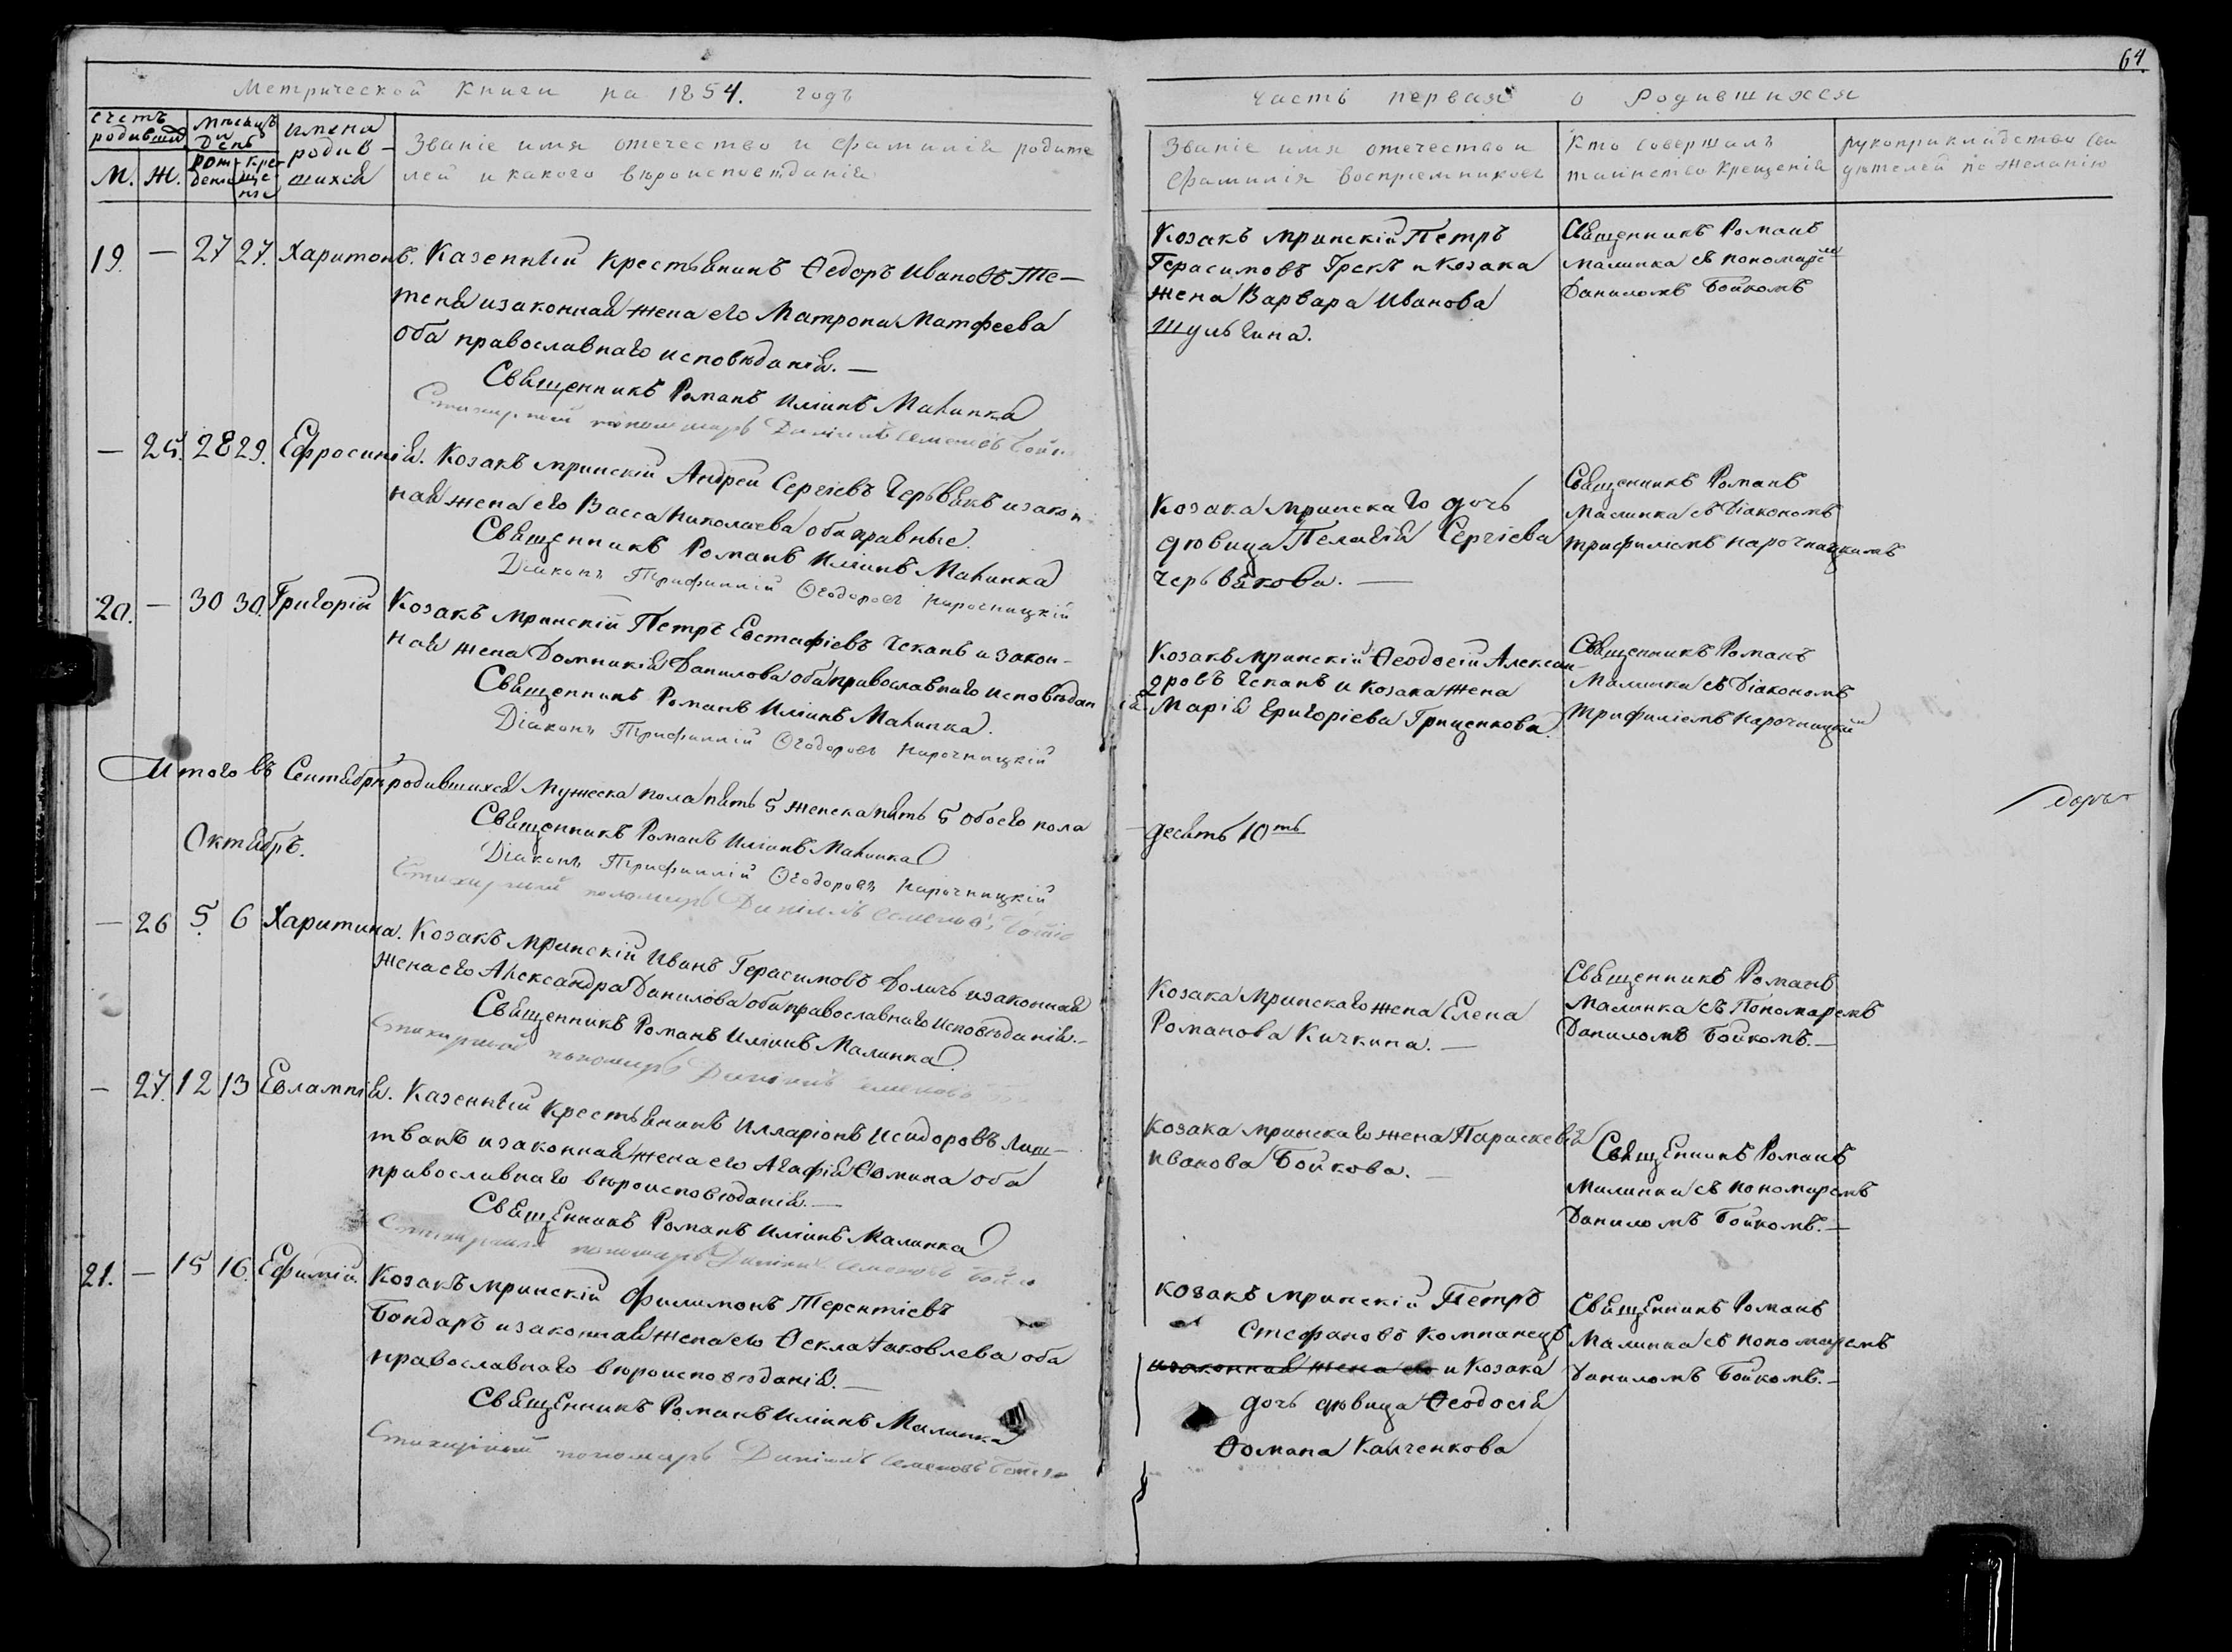 64.
Метрической Книги на 1854. годъ
Часть первая о Родившихся
счетъ родивших
Мѣсяцъ и День
имена родив-шихся
Званіе имя отечество и фамилія родите
лей и какого вѣроисповѣданія
М. Ж.
рож-денія
кре-ще-нія
Званіе имя отечество и
фамилія воспріемниковъ
Кто совершалъ
таинство Крещенія
рукоприкладство сви
дѣтелей по желанію
19. — 27 27. Харитонъ. Казенный крестьянинъ Ѳедоръ Ивановъ Же-
теня и законная жена его Матрона Матфеева
оба православнаго исповѣданія. —
Священникъ Романъ Иліинъ Малинка
Стихарный пономарь Даніилъ Семеновъ Бойко
Козакъ мринскій Петръ
Герасимовъ Грекъ и козака
жена Варвара Иванова
Шульгина.
Священникъ Романъ
Малинка съ пономаремъ
Даниломъ Бойкомъ
— 25. 28 29. Ефросинія. Козакъ мринскій Андрей Сергіевъ Червякъ и закон
ная жена его Васса Николаева оба правные.
Священникъ Романъ Иліинъ Малинка
Діаконъ Трифиллій Ѳеодоровъ Нарочницкій
Козака мринскаго дочь
дѣвица Пелагія Сергіева
Червякова. —
Священникъ Романъ
Малинка съ Діакономъ
Трифиліемъ Нарочницкимъ
20. — 30 30. Григорій Козакъ мринскій Петръ Евстафіевъ Чеканъ и закон-
ная жена Домникія Данилова оба православнаго исповѣдан
ія
Священникъ Романъ Иліинъ Малинка.
Діаконъ Трифиллій Ѳеодоровъ Нарочницкій
Козакъ мринскій Ѳеодосій Алексан-
дровъ Чеканъ и козака жена
Марія Григоріева Гриценкова.
Священникъ Романъ
Малинка съ Діакономъ
Трифиліемъ Нарочницким
Итого въ Сентябрѣ родившихся Мужеска пола пять 5 женска пять 5 обоего пола
десять 10ть
Священникъ Романъ Иліинъ Малинка
Діаконъ Трифиллій Ѳеодоровъ Нарочницкій
Стихарный пономарь Даніилъ Семеновъ Бойко
Октябрь.
— 26 5. 6 Харитина. Козакъ мринскій Иванъ Герасимовъ Доличъ и законная
жена его Александра Данилова оба православнаго исповѣданія.-
Священникъ Романъ Иліинъ Малинка.
Стихарный пономарь Даніилъ Семеновъ
Козака мринскаго жена Елена
Романова Кичкина. —
Священникъ Романъ
Малинка съ Пономаремъ
Даниломъ Бойкомъ. —
— 27. 12 13 Евлампія. Казенный крестьянинъ Илларіонъ Исидоровъ Лит-
тванъ и законная жена его Агафія Ѳомина оба
православнаго вѣроисповѣданія. —
Священникъ Романъ Иліинъ Малинка
Стихарный пономарь Даніилъ Семеновъ Бойко
Козака мринскаго жена Параскевія
Иванова Бойкова. —
Священникъ Романъ
Малинка съ пономаремъ
Даниломъ Бойкомъ. —
21. — 15 16. Ефимій. Козакъ мринскій Филимонъ Терентіевъ
Бондаръ и законная жена его Ѳекла Іаковлева оба
православнаго вѣроисповѣданія. —
Священникъ Романъ Иліинъ Малинка
Стихарный пономарь Даніилъ Семеновъ Бойко
Козакъ мринскій Петръ
Стефановъ Компанецъ
и законная жена его и Козака
дочь дѣвица Ѳеодосія
Ѳомина Капченкова
Священникъ Романъ
Малинка съ пономаремъ
Даниломъ Бойкомъ. —